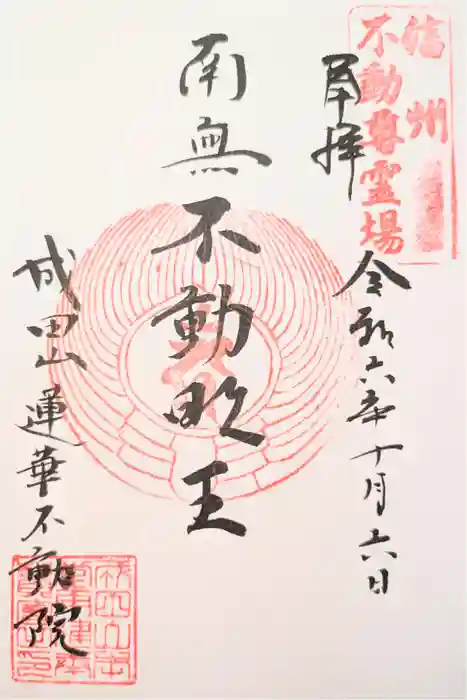 信州
不動尊霊場
奉拝
令和六年十月六日
南無不動明王
成田山蓮華不動院